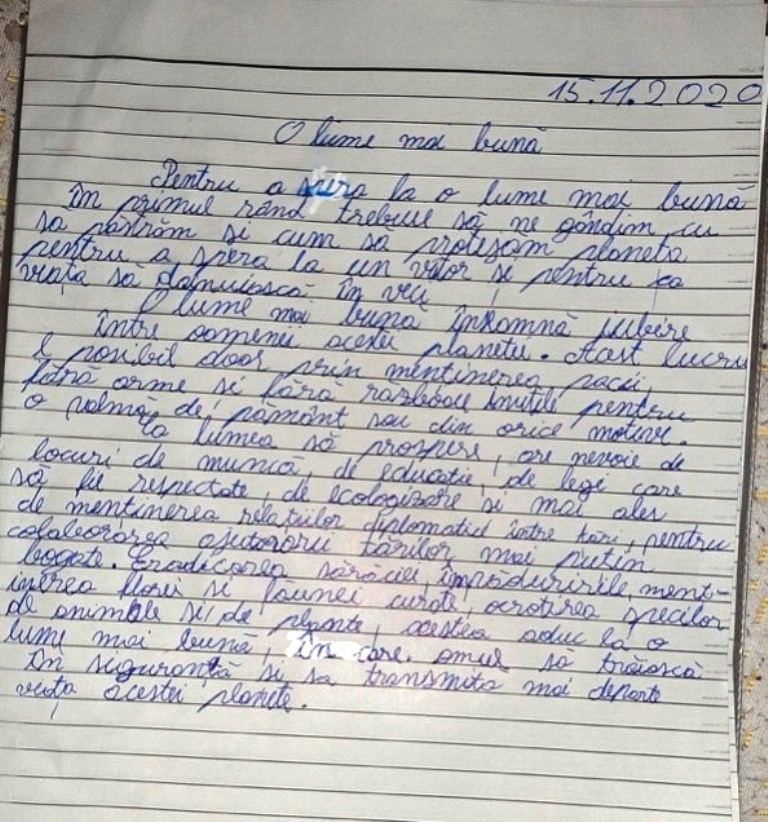 15.11.2020
O lume mai bună
Pentru a spera la o lume mai bună
în primul rând trebuie să ne gândim cu
să păstrăm și cum să protejăm planeta
pentru a spera la un viitor și pentru ca
viața să dăinuiască în veci
O lume mai bună înseamnă iubire
între oamenii acestei planetei. Acest lucru
e posibil doar prin menținerea păcii,
fără arme și fără războaie inutile pentru
o palmă de pământ sau din orice motive.
Ca lumea să prospere, are nevoie de
locuri de muncă, de educație, de legi care
să fie respectate, de ecologizare și mai ales
de menținerea relațiilor diplomatice între țări, pentru
colaborarea ajutorării țărilor mai puțin
bogate. Eradicarea sărăciei, împăduririle, menț-
inerea florei și faunei curate, ocrotirea speciilor
de animale și de plante, acestea aduc la o
lume mai bună, în care omul să trăiască
în siguranță și sa transmita mai departe
viața acestei planete.